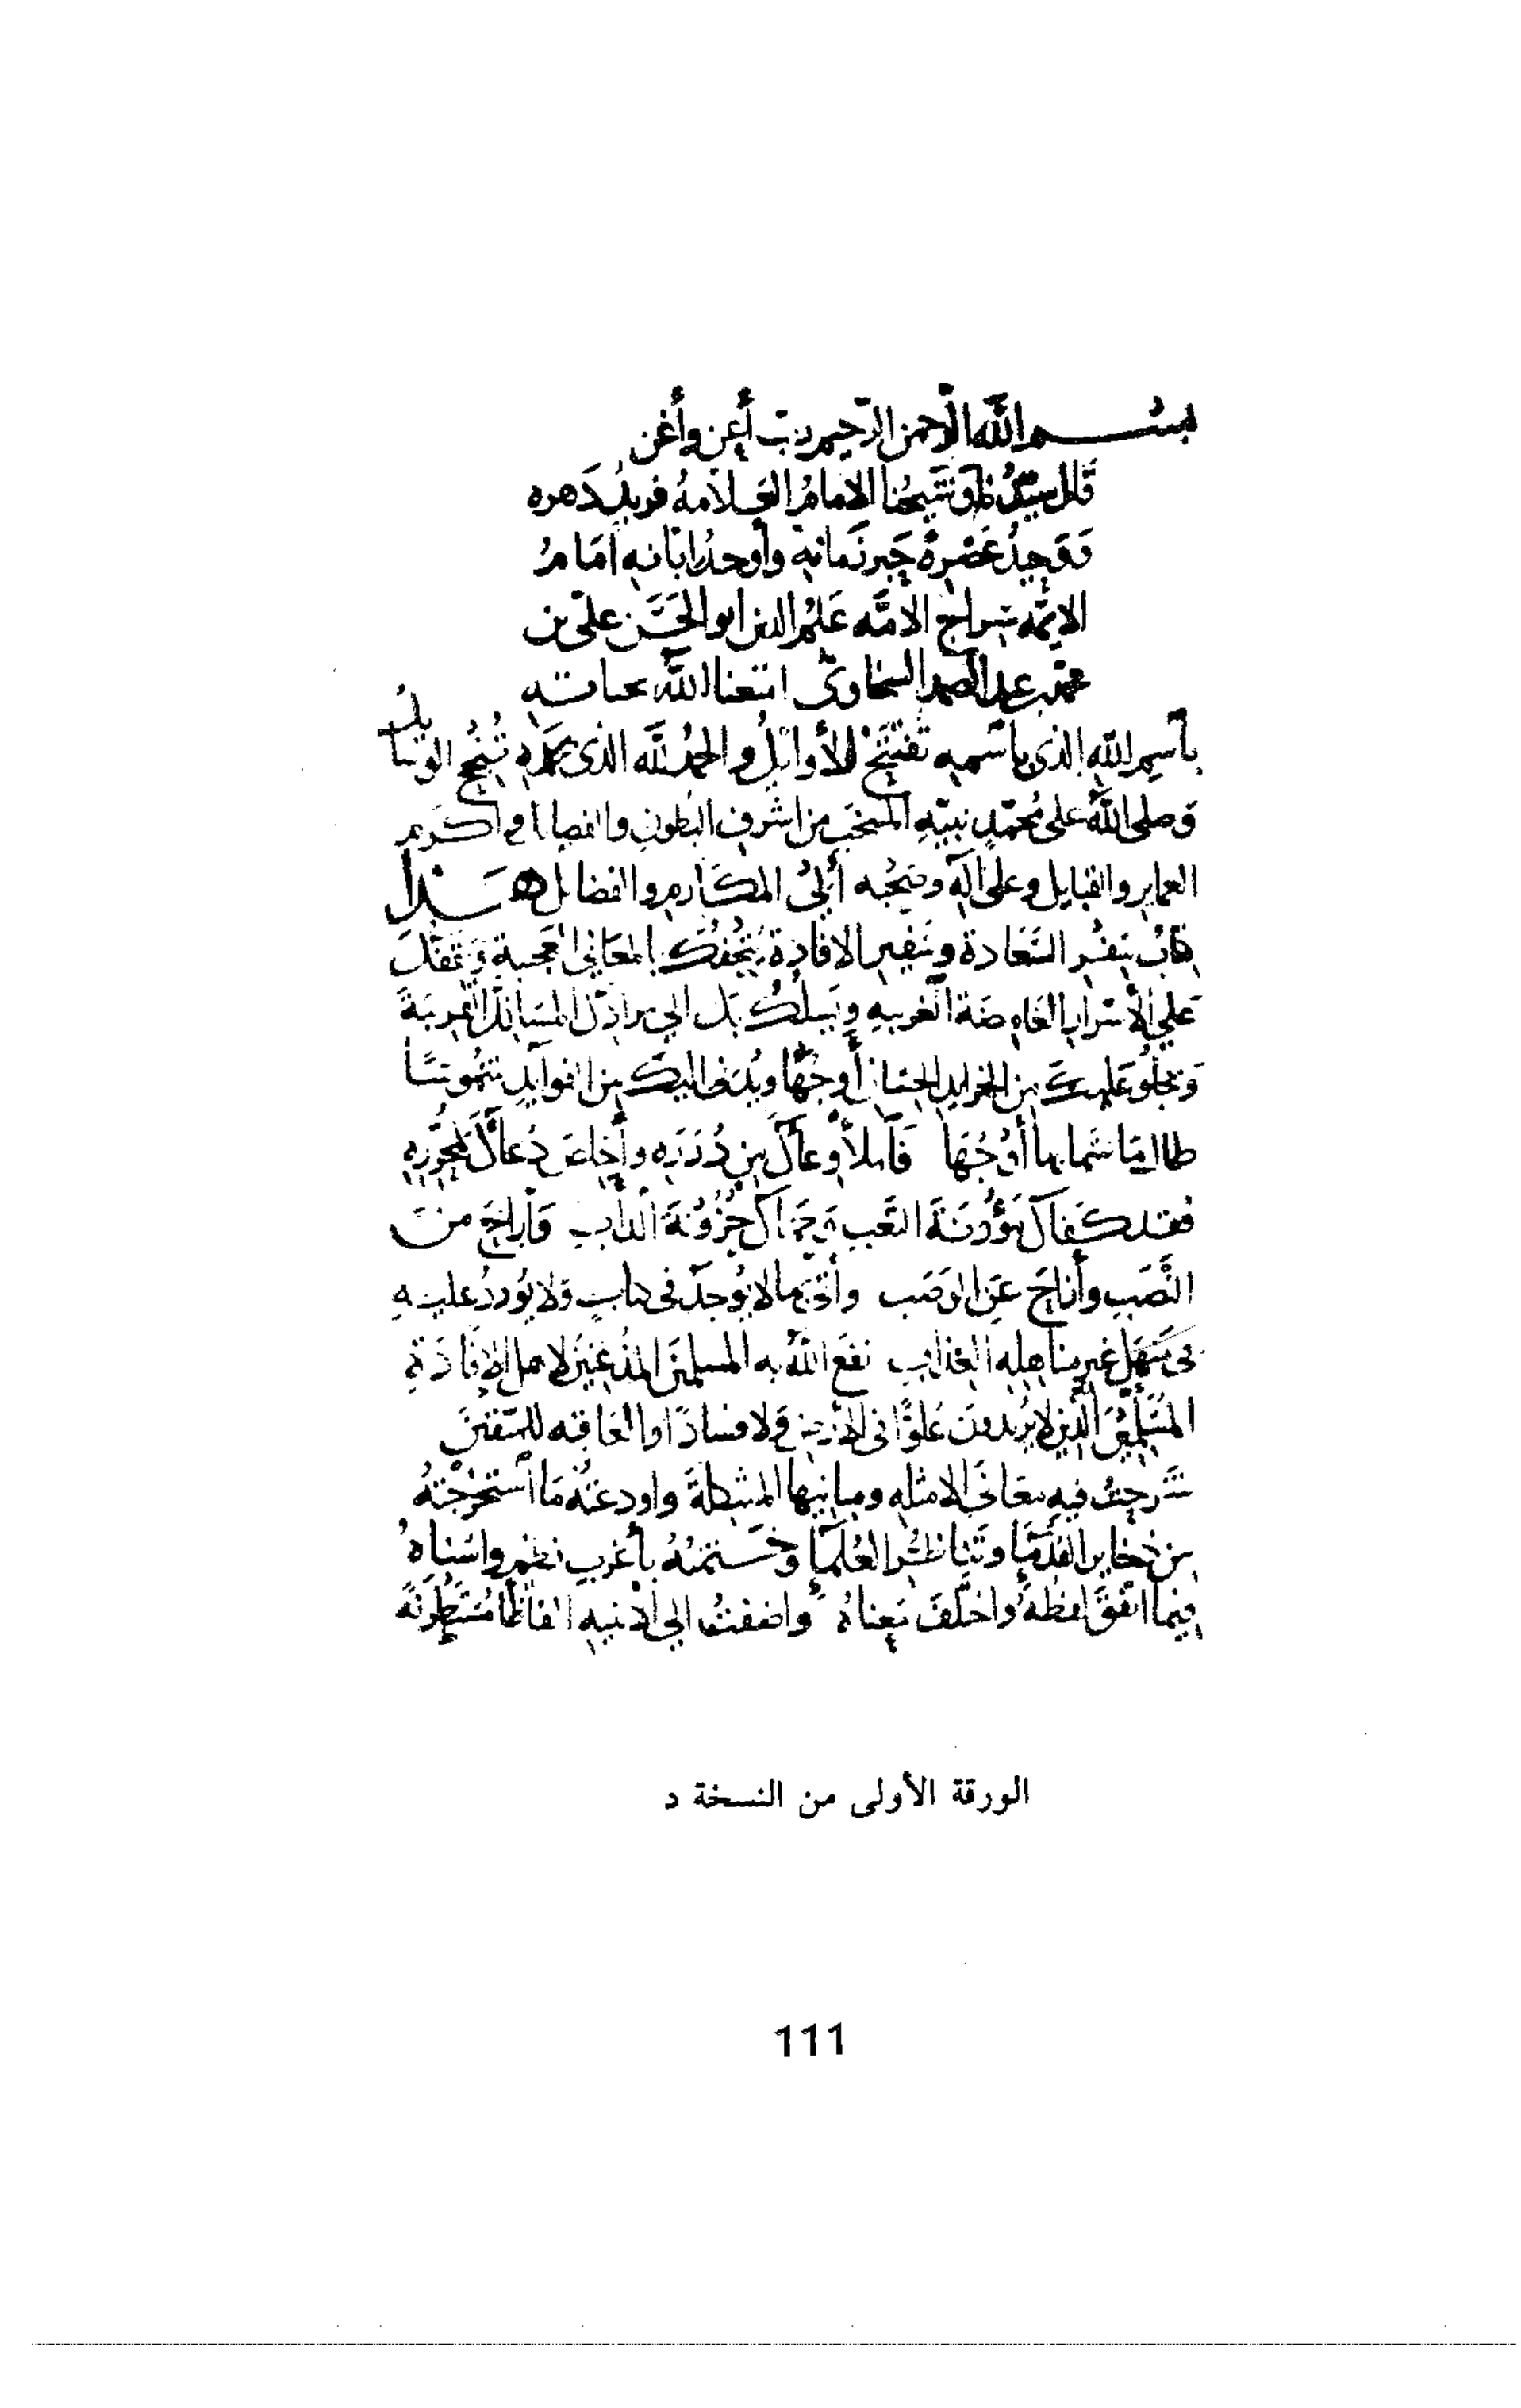 بسم الله الرحمن الرحيم رب أعن وأغن
قال سيدنا وشيخنا الامام العلامة فريد دهره
ووحيد عصره حبر زمانه وأوحد ابانه امام
الايمه سراج الامه علم الدين ابو الحسن علي بن
محمد بن عبد الصمد السخاوى امتعنا الله بحياته
بأسم الله الذي بأسمه تفتتح الأوايل والحمد لله الذى بحمده تنجح الوسايل
وصلى الله على محمد نبيه المنتخب من اشرف البطون والفصايل واكرم
العماير والقبايل وعلى آله وصحبه أولى المكارم والفضايل هذا
كتاب سفر السعادة وسفير الافادة يتحفك بالمعاني العجيبة ويقفك
على الأسرار الغامضة الغريبه ويسلك بك الي المسايل القريبة
ويجلو عليك من الخرايد الحسان أوجها ويدنى اليك من الفوايد شموسا
طالما شما بها أوجها فأملأ وعاك من درره وأخلص دعاك لمحرره
فقد كفاك مؤونة التعب وحماك حزونة الدأب وأراح من
النصب وأناخ عن الوصب وأتى بما لا يوجد في كتاب ولا يورد عليه
في منهل غير مناهله العذاب نفع الله به المسلمين المذعنين لاهل الافادة
المسلمين الذين لا يريدون علوا فى الأرض ولا فسادا والعاقبه للمتقين
شرحت فيه معاني الامثله ومبانيها المشكلة واودعته ما استخرجته
من ذخاير القدما وتناظر العلما وختمته بأغرب نظم واسناه
فيما اتفق لفظه واختلف معناه واضفت الي أبنيه الفاظا مستطرفة
الورقة الأولى من النسخة د
111